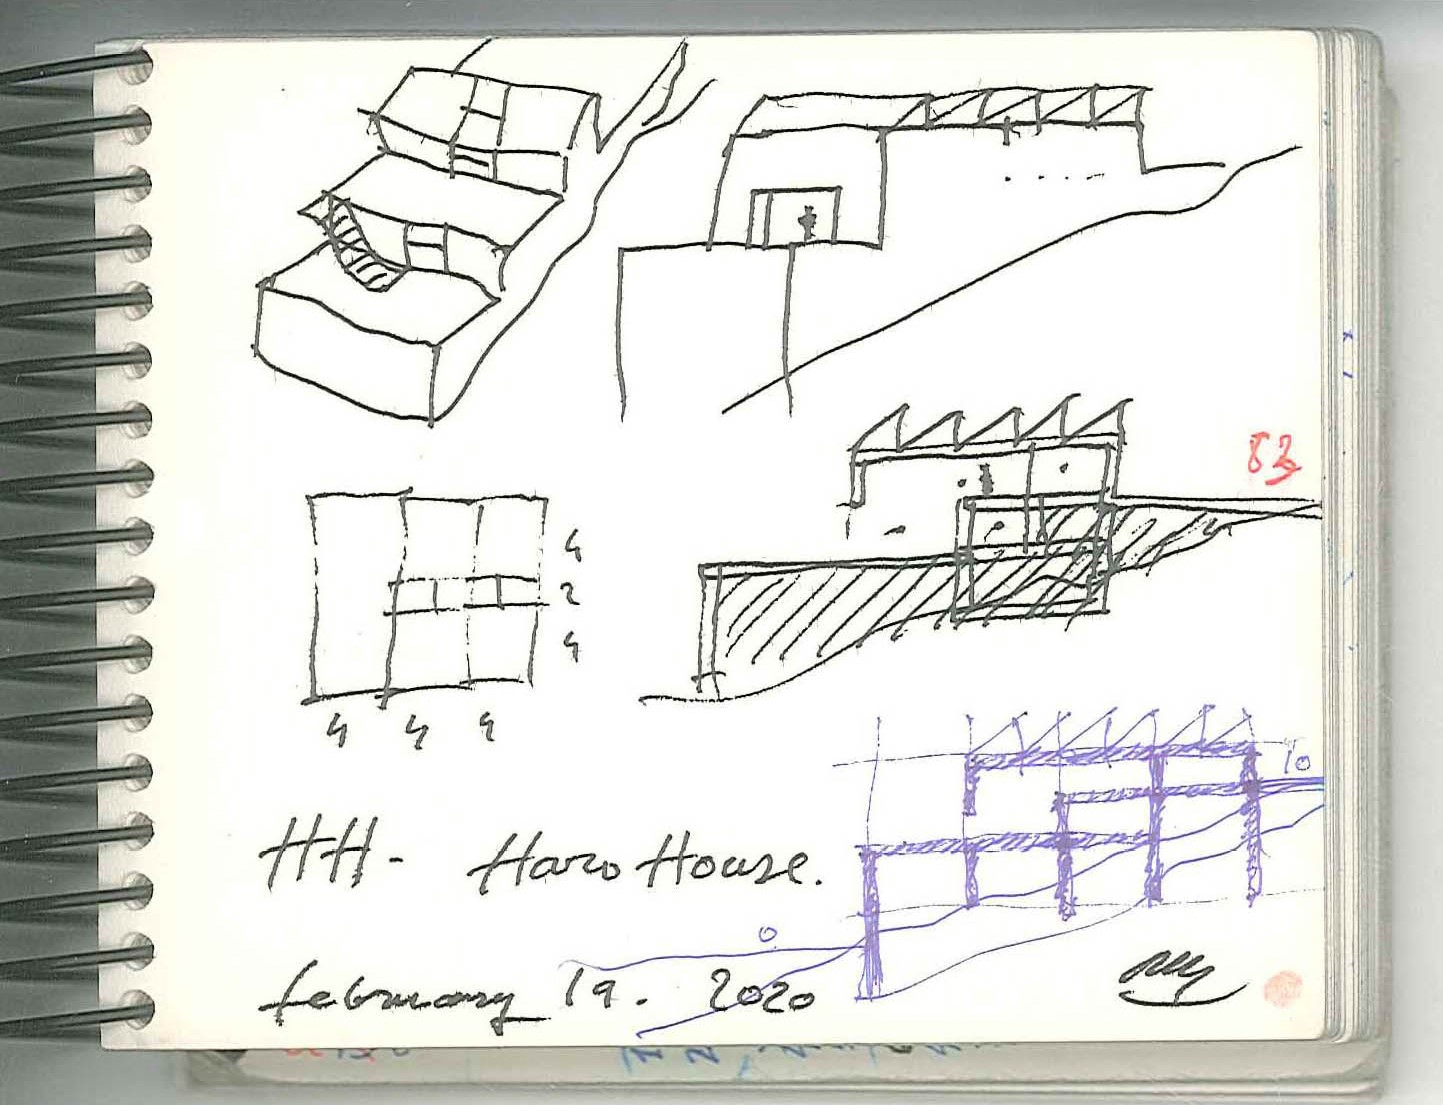 83
4
2
4
4 4 4
10
HH - Haro House.
0
february 19. 2020